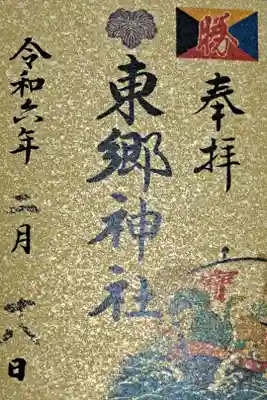 勝
奉拝
東郷神社
令和六年 二月 十八日